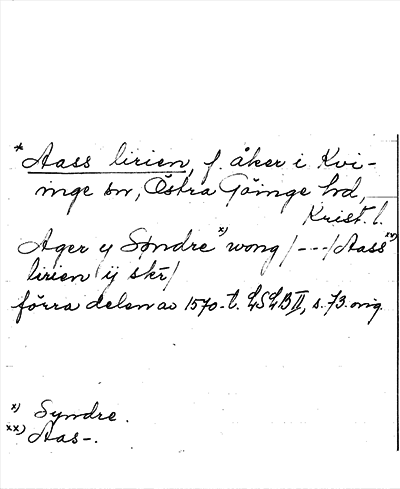 * Aass lirien, f. åker i Kvi-
inge sn, Östra Göinge hd,
Krist. l.
Ager y Søndre x) wong /---/ Aass xx)
lirien ij skr/
förra delen av 1570-t. LSLB II, s. 73. orig.
x) Syndre.
xx) Aas-.